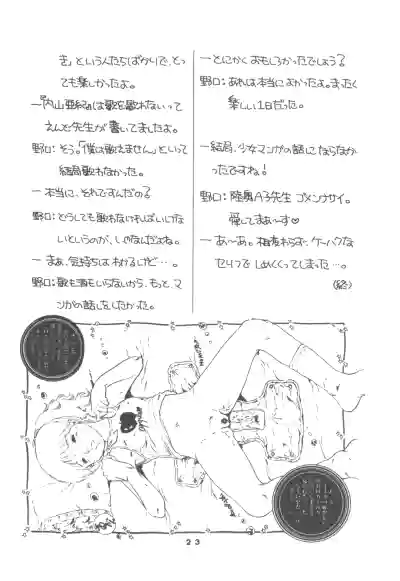 き」という人たちばかりで、とっ
ても楽しかったよ。
—『内山亜紀』は歌を歌わないって
えんど先生が書いてましたよ。
野口：そう。「僕は歌えません」といって
結局歌わなかった。
—本当に、それですんだの？
野口：どうしても歌わなければいけな
いというのが、しゃなんだよね。
—まぁ、気持ちはわかるけど…。
野口：歌も酒もいらないから、もっと、マ
ンガの話しをしたかった。
—とにかくおもしろかったでしょう？
野口：あれは本当によかったよ。まったく
楽しい１日だった。
—結局、少女マンガの話にならなか
ったですね！
野口：陸奥A子先生 ゴメンナサイ。
愛してまぁ〜す♡
—あ〜あ。相変わらず、ケーハクな
セリフでしめくくってしまった…。
（終）
23